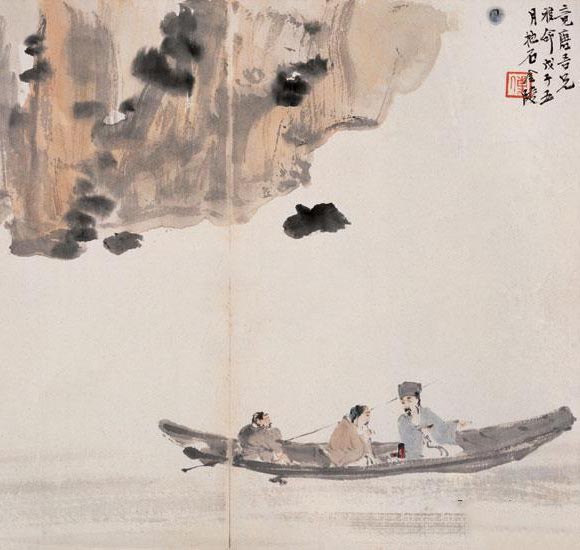 竟唐吾兄
雅命戊子五
月抱石金陵
傅